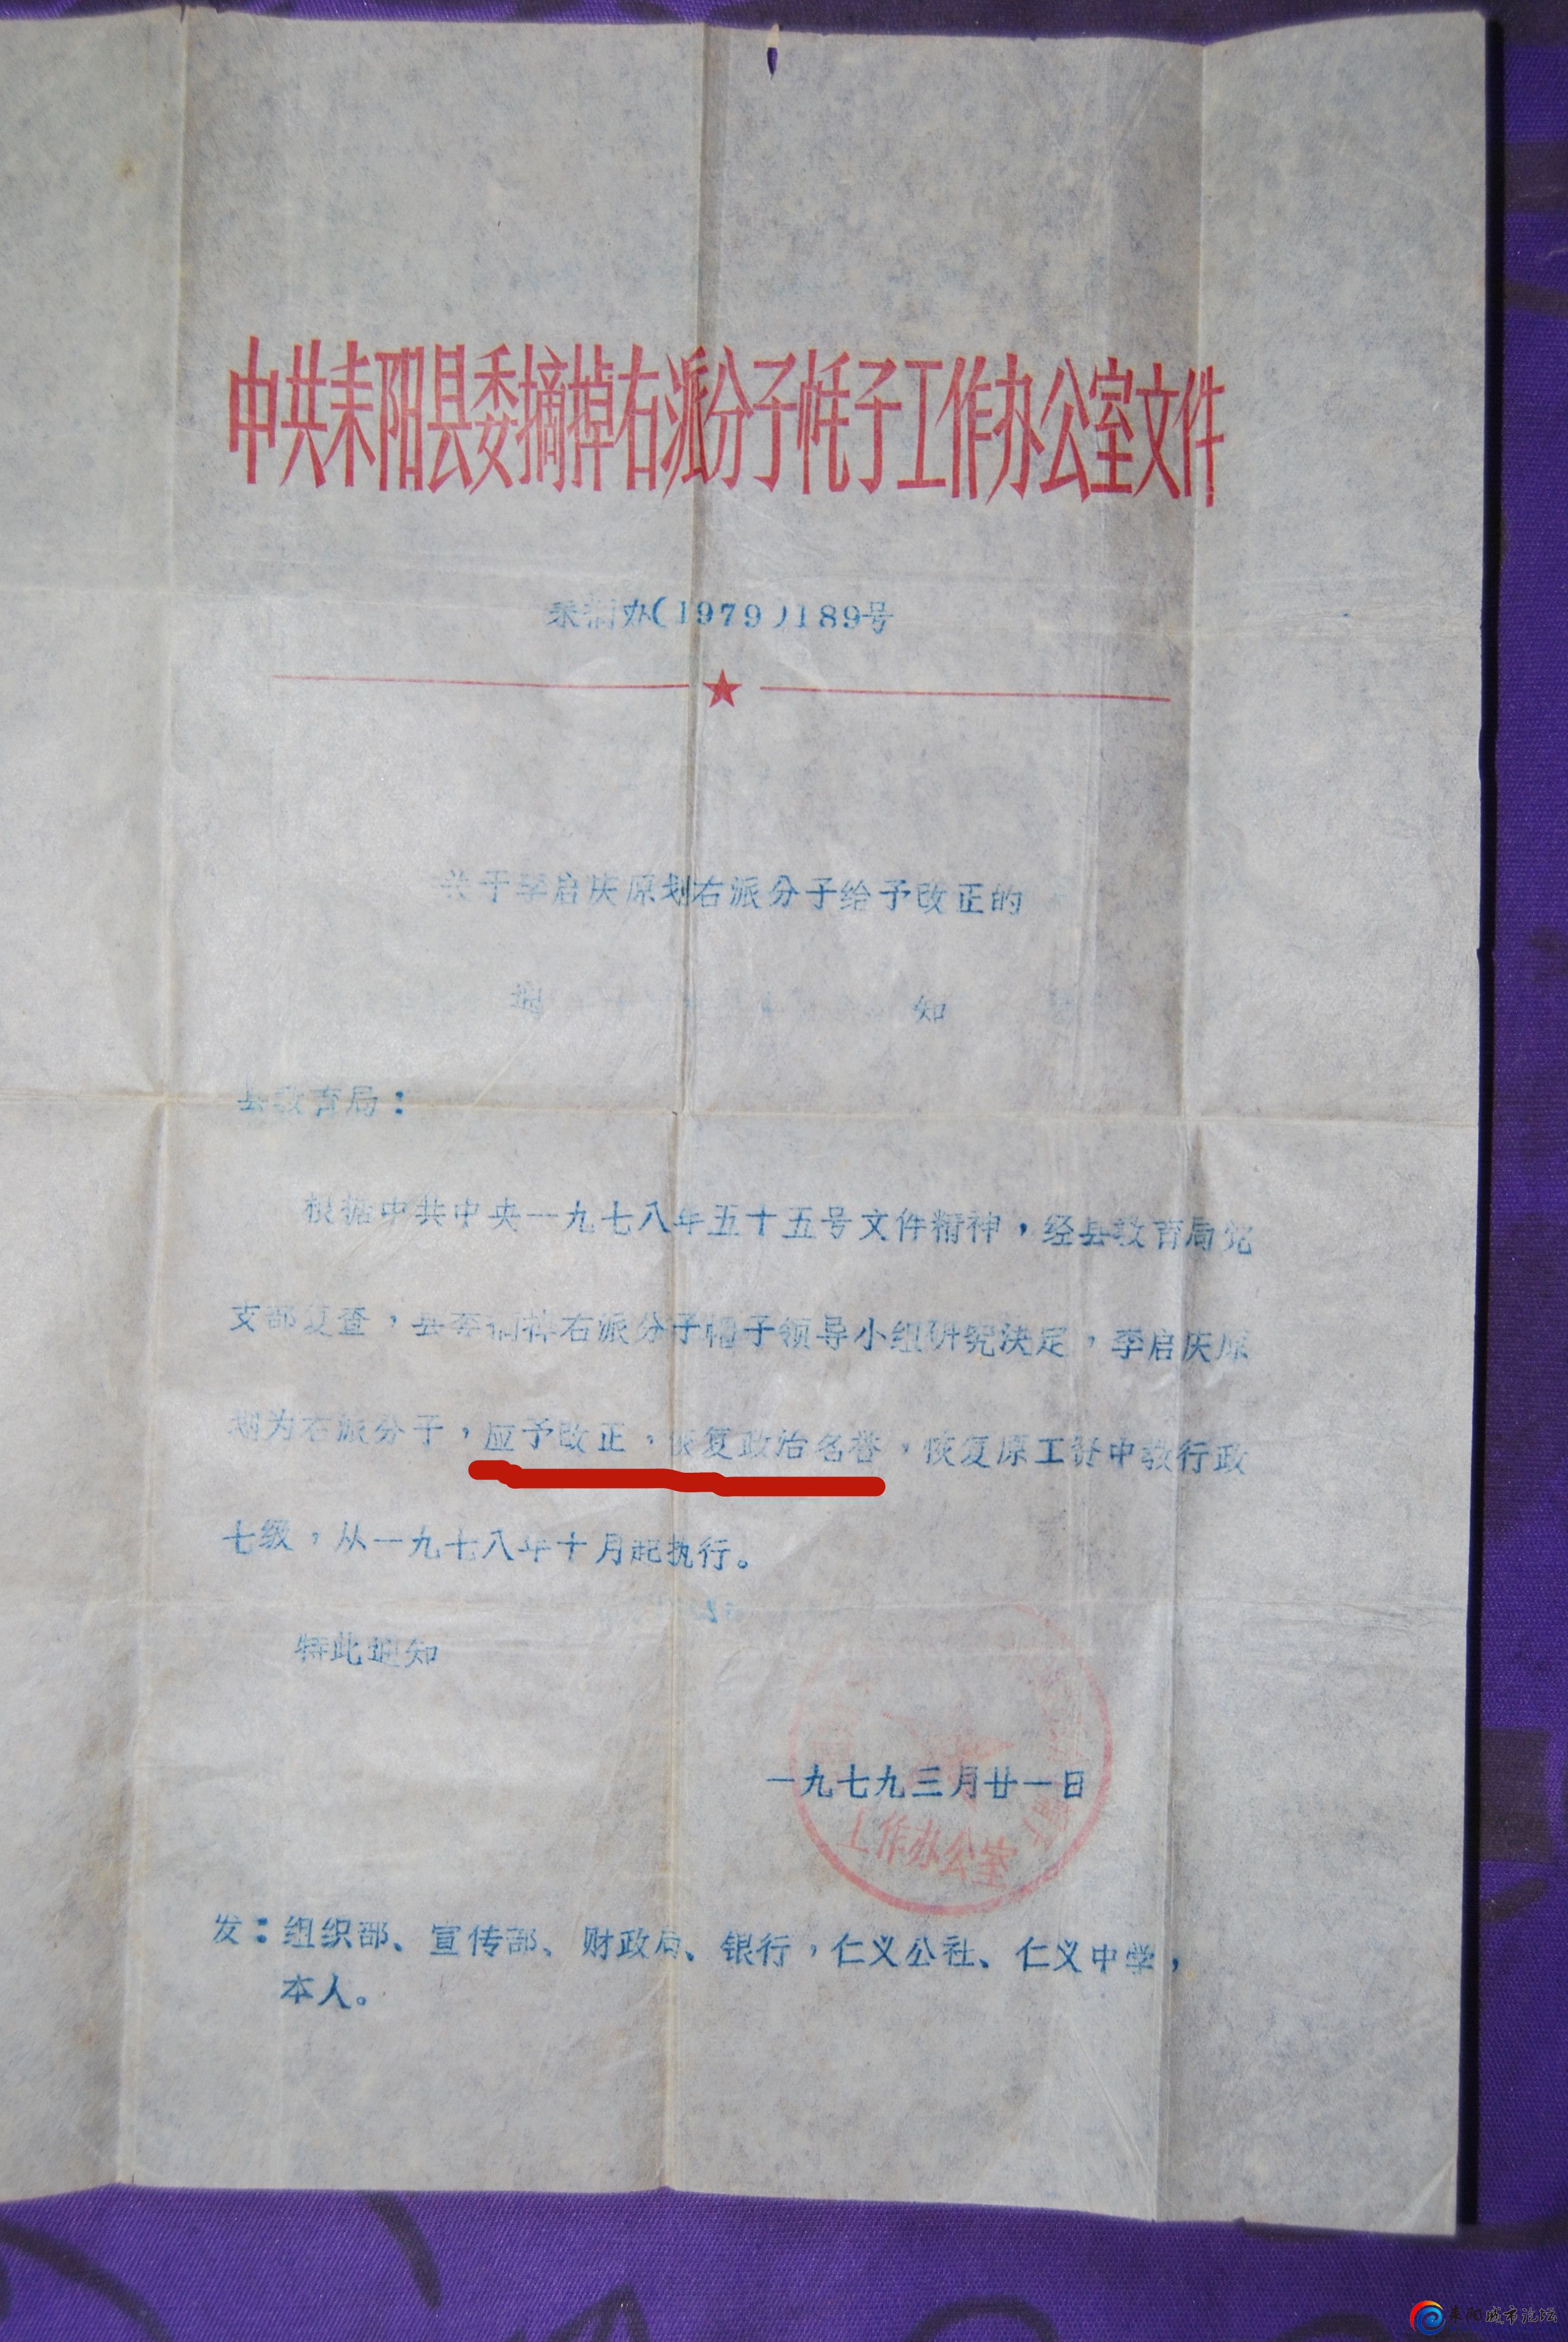 中共耒阳县委摘掉右派分子帽子工作办公室文件
耒摘办(1979)189号
关于李启庆原划右派分子给予改正的
通 知
县教育局：
根据中共中央一九七八年五十五号文件精神，经县教育局党
支部复查，县委摘掉右派分子帽子领导小组研究决定，李启庆原
划为右派分子，应予改正，恢复政治名誉，恢复原工资中教行政
七级，从一九七八年十月起执行。
特此通知
一九七九三月廿一日
工作办公室
发：组织部、宣传部、财政局、银行，仁义公社、仁义中学，
本人。
耒阳城市论坛